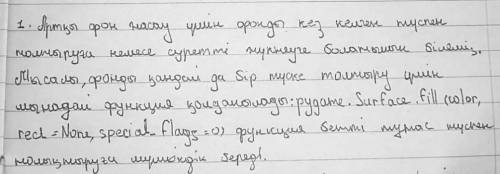 1. Артқы фон жасау үшін фонды кез келген түспен
толтыруға немесе суретті жүктеуге болатынын білеміз.
Мысалы, фонды қандай да бір түске толтыру үшін
мынадай функция қолданылады: pygame.Surface.fill(color,
rect = None, special_flags = 0) функция бетті тұтас түспен
толықтыруға мүмкіндік береді.